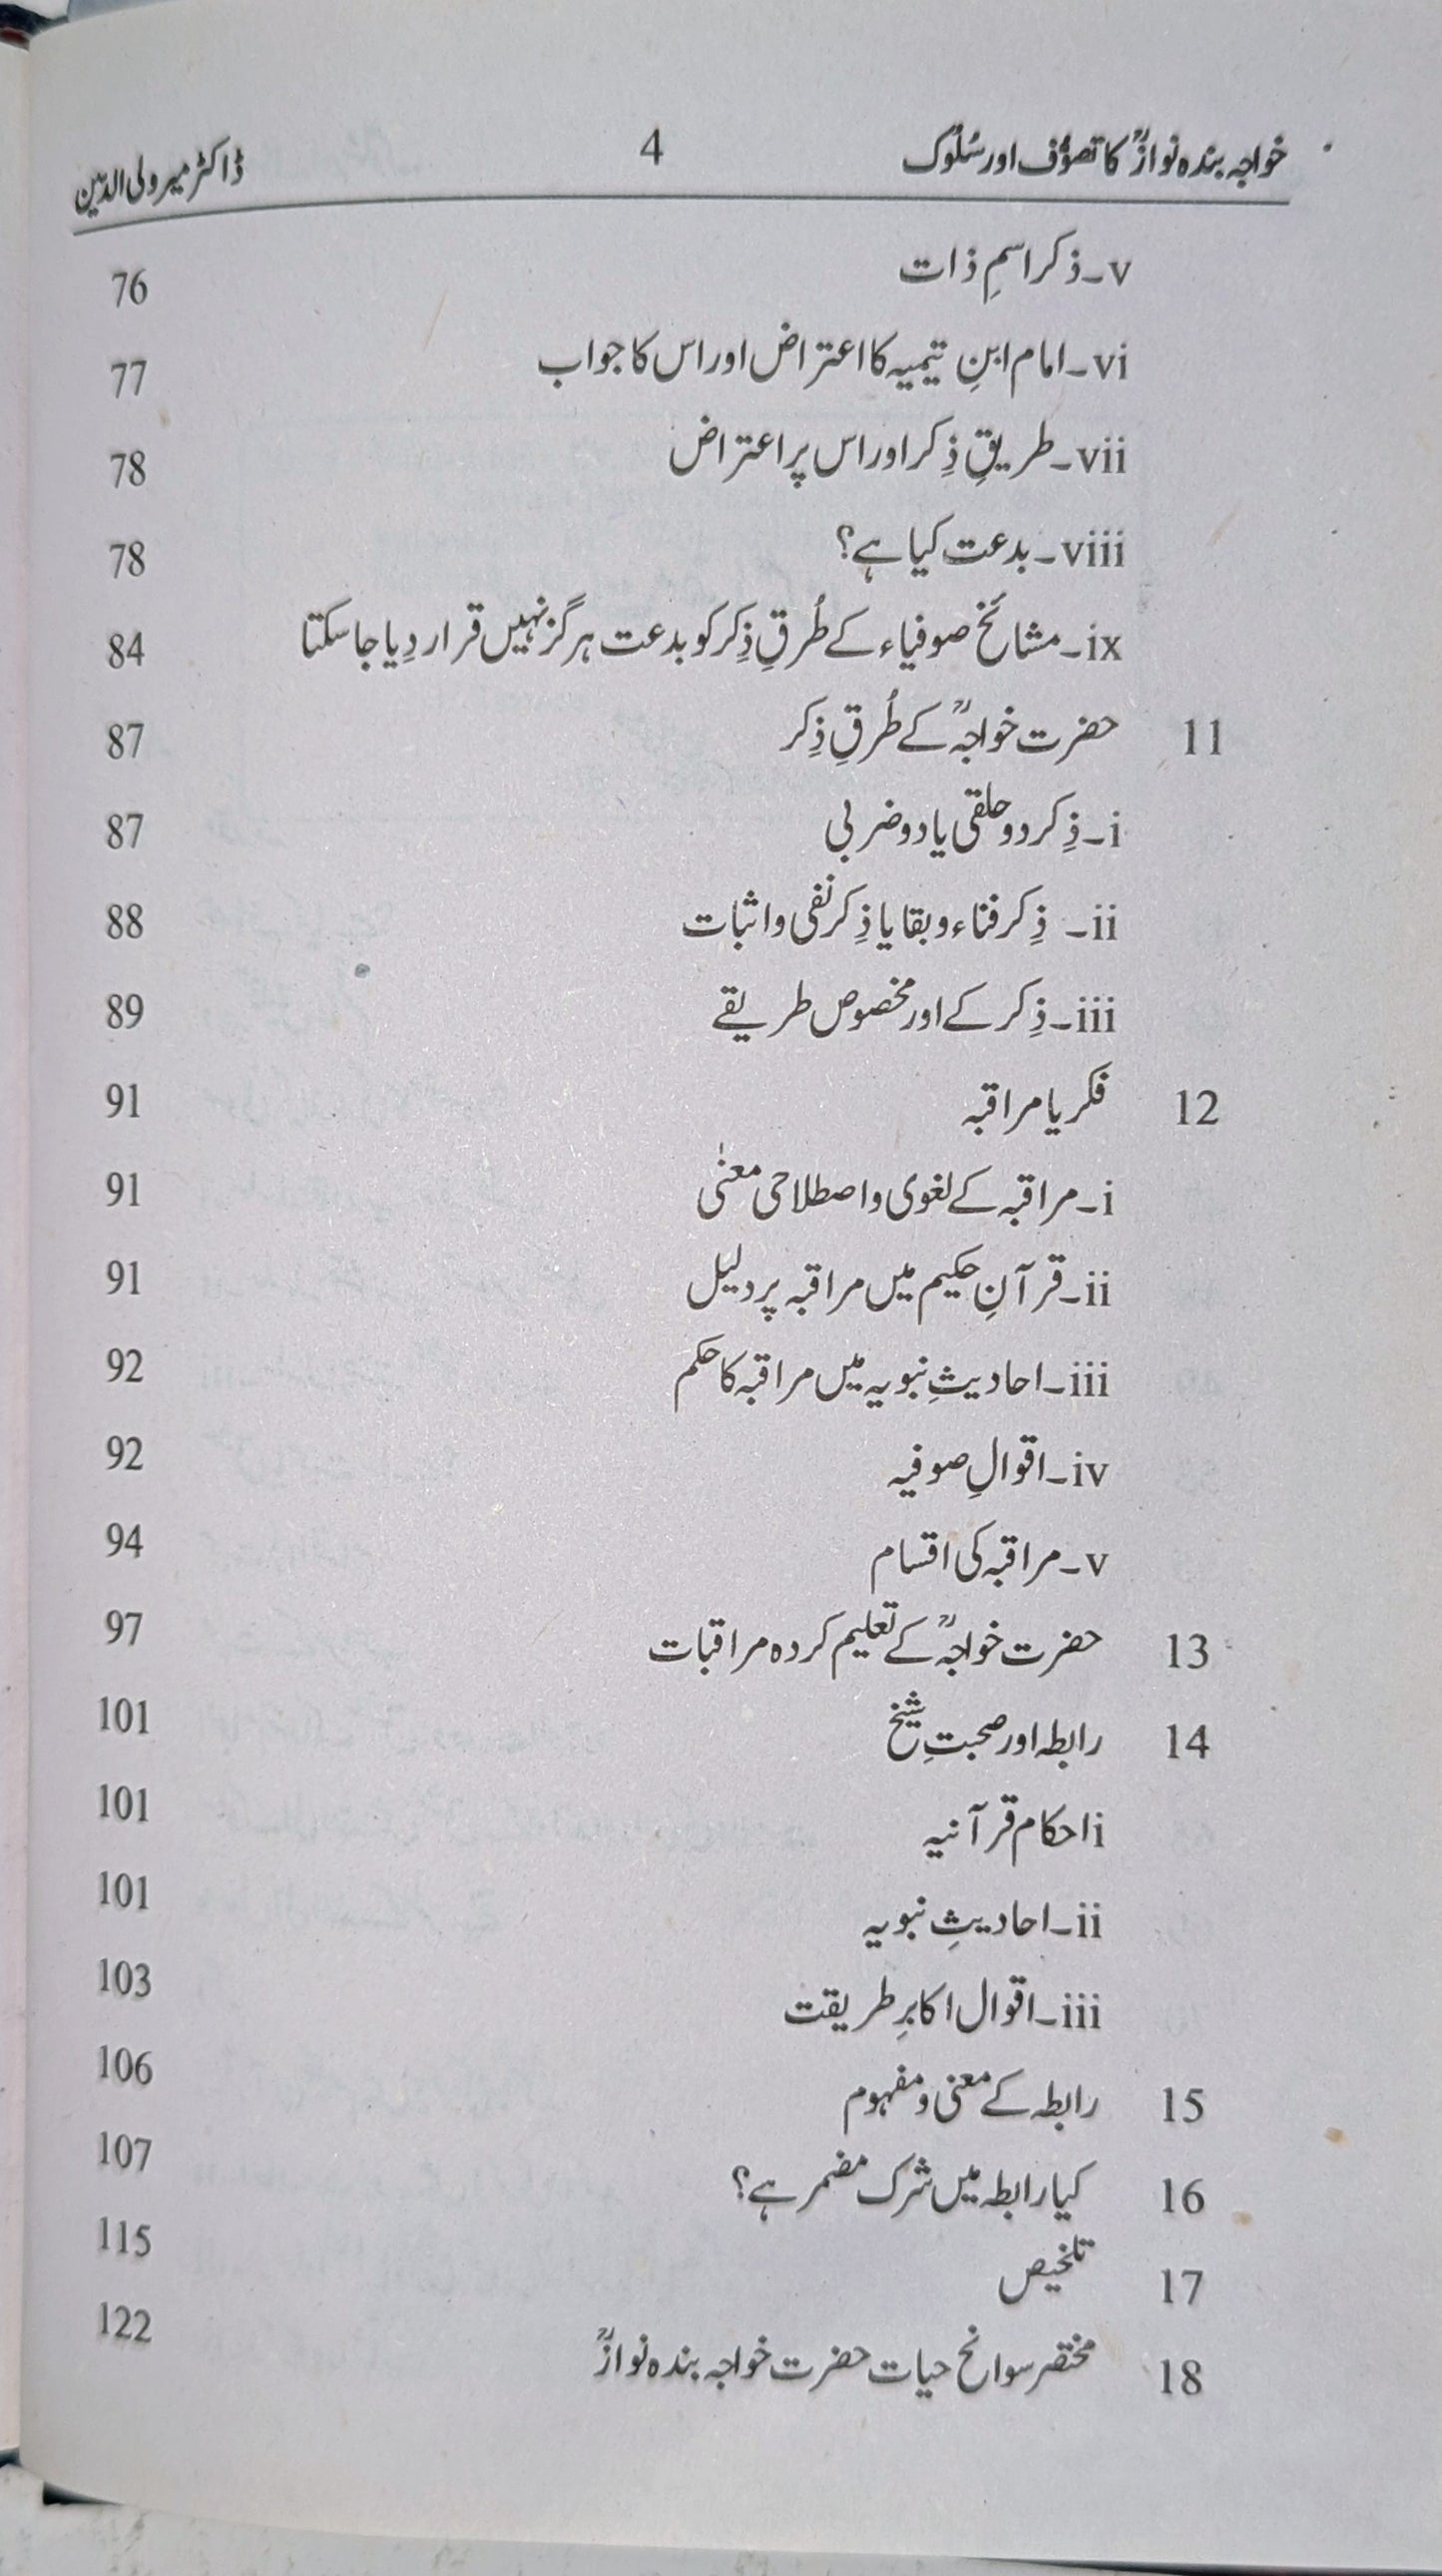 خواجہ بندہ نوازؒ کا تصوّف اور سُلوک 4 ڈاکٹر میر ولی الدین
v۔ذکر اسمِ ذات 76
vi۔امام ابنِ تیمیہ کا اعتراض اور اس کا جواب 77
vii۔طریقِ ذِکر اور اس پر اعتراض 78
viii۔بدعت کیا ہے؟ 78
ix۔مشائخ صوفیاء کے طُرقِ ذِکر کو بدعت ہرگز نہیں قرار دِیا جا سکتا 84
11 حضرت خواجہؒ کے طُرقِ ذِکر 87
i۔ذِکر دو حلقی یا دو ضربی 87
ii۔ ذِکر فناء و بقا یا ذِکر نفی و اثبات 88
iii۔ذِکر کے اور مخصوص طریقے 89
12 فکر یا مراقبہ 91
i۔مراقبہ کے لغوی و اصطلاحی معنٰی 91
ii۔قرآنِ حکیم میں مراقبہ پر دلیل 91
iii۔احادیثِ نبویہ میں مراقبہ کا حکم 92
iv۔اقوالِ صوفیہ 92
v۔مراقبہ کی اقسام 94
13 حضرت خواجہؒ کے تعلیم کردہ مراقبات 97
14 رابطہ اور صحبتِ شیخ 101
i احکام قرآنیہ 101
ii۔احادیثِ نبویہ 101
iii۔اقوال اکابرِ طریقت 103
15 رابطہ کے معنی و مفہوم 106
16 کیا رابطہ میں شرک مضمر ہے؟ 107
17 تلخیص 115
18 مختصر سوانح حیات حضرت خواجہ بندہ نوازؒ 122